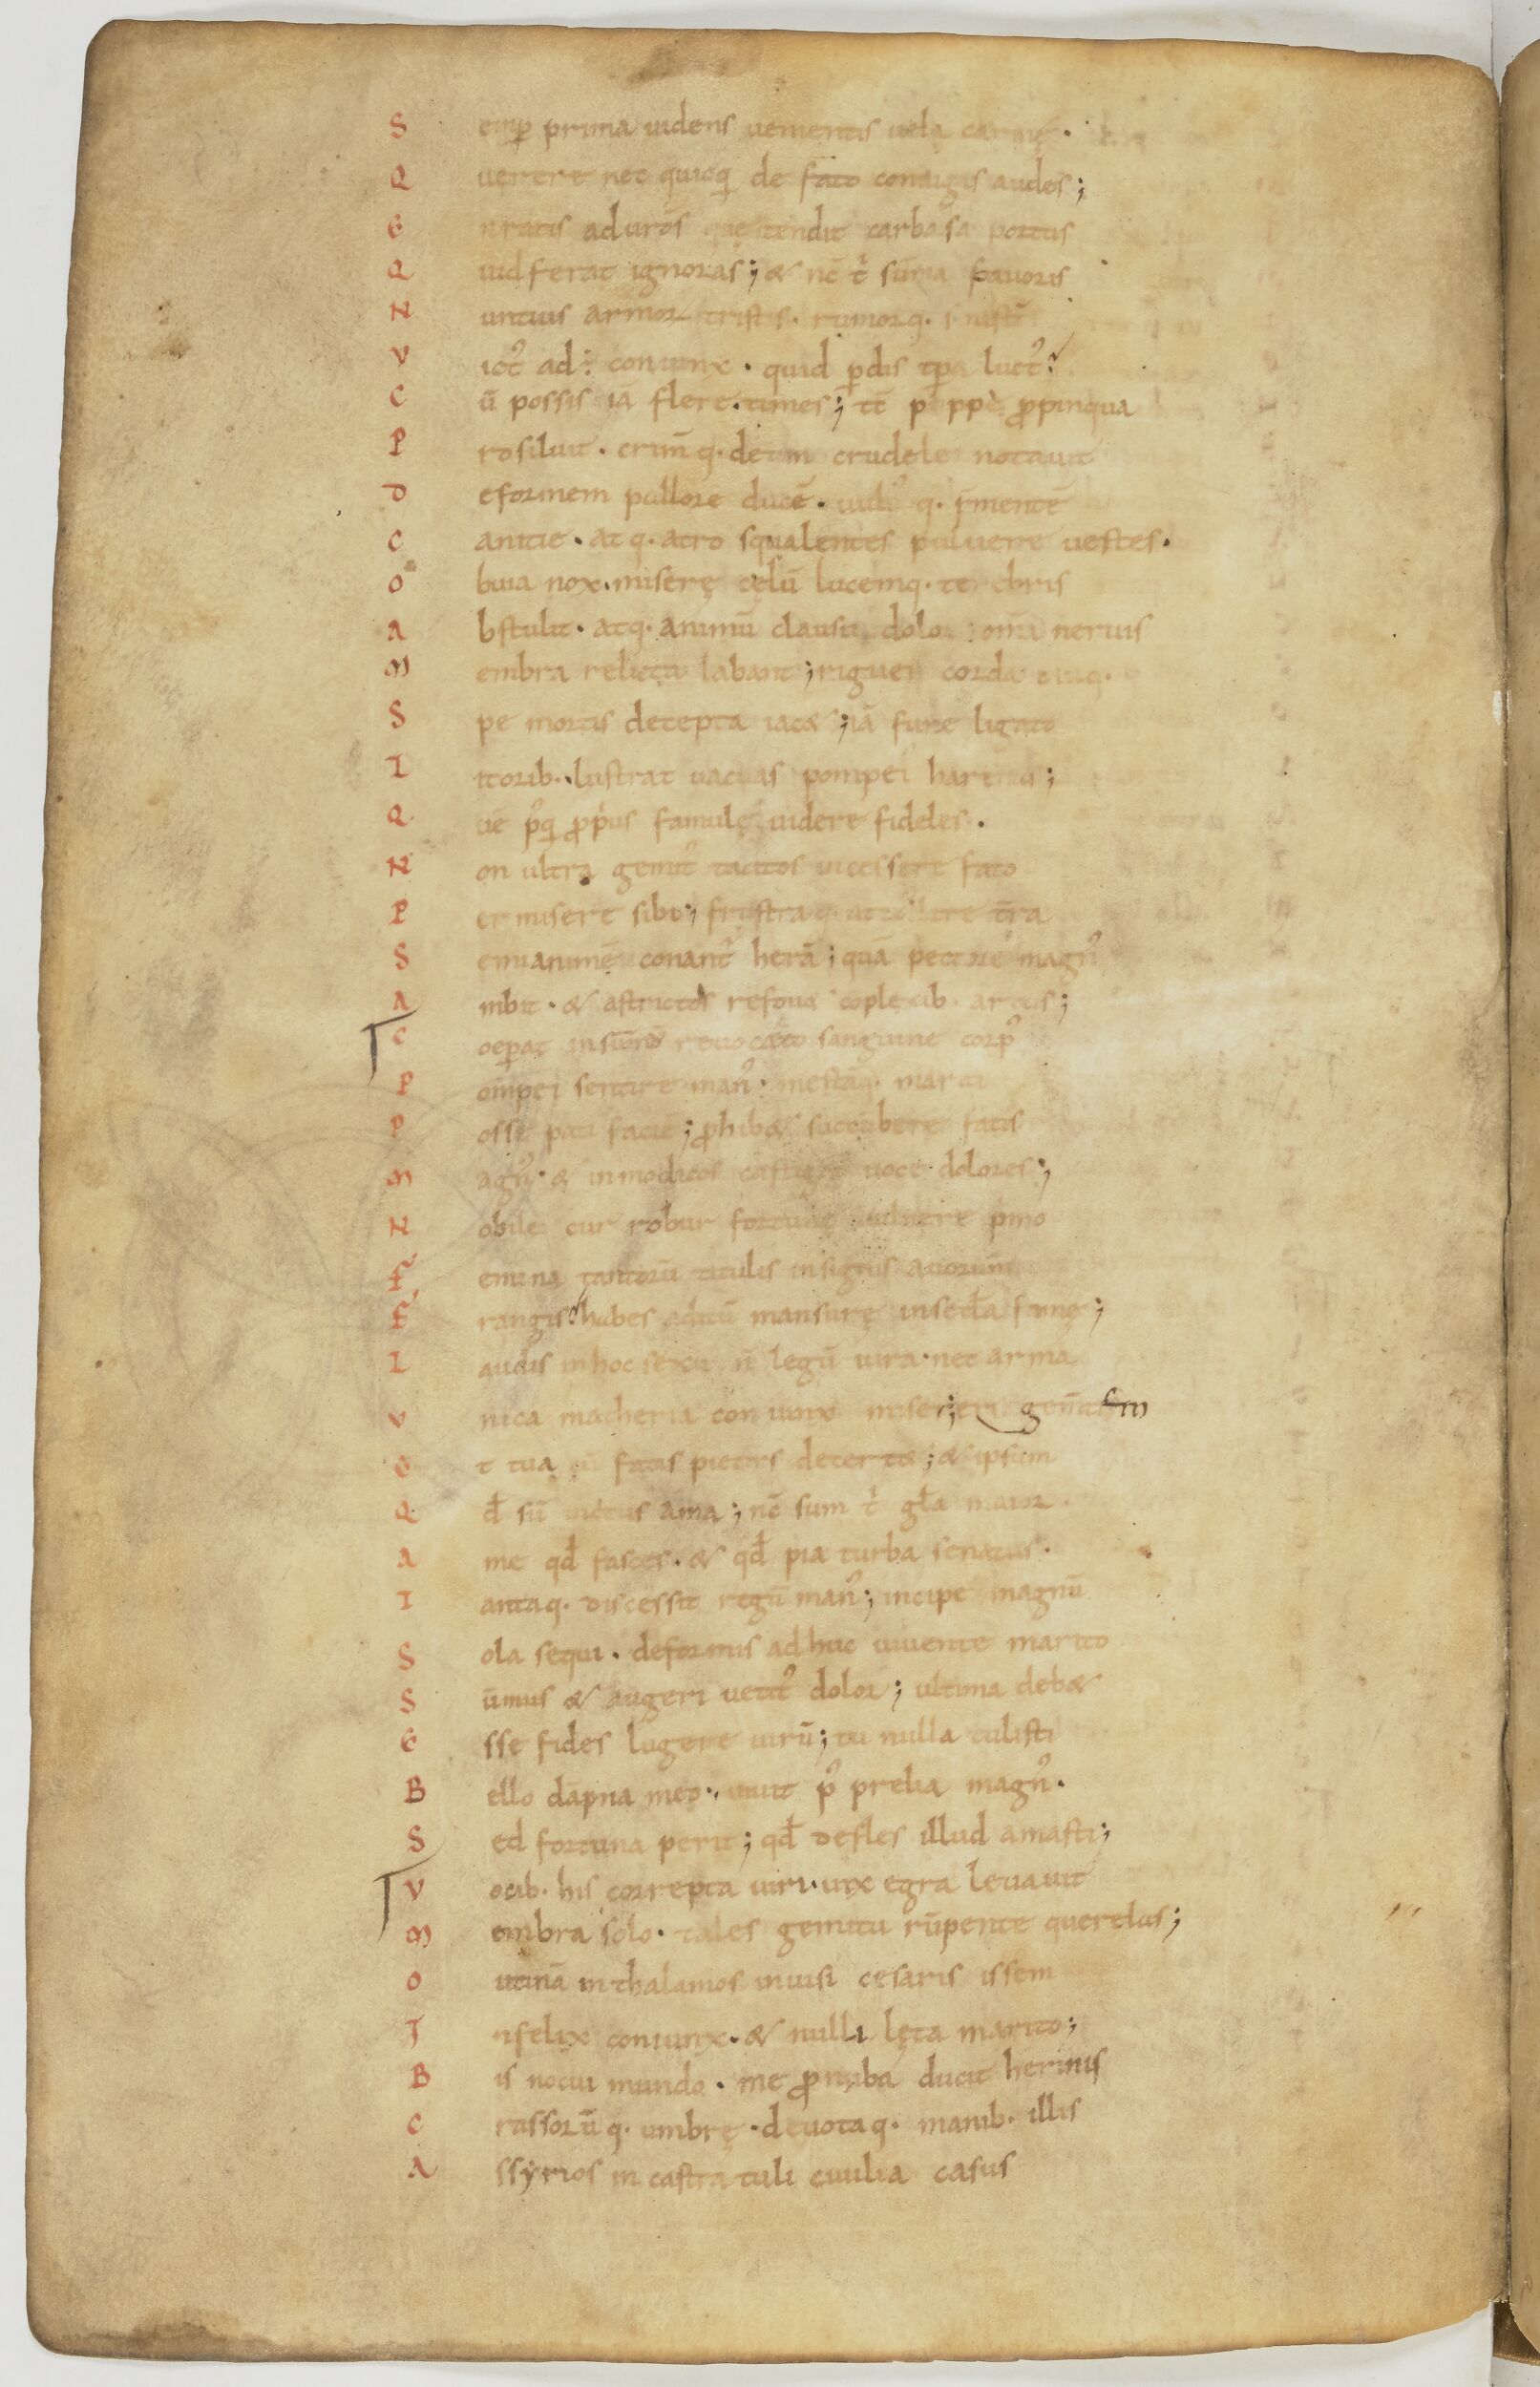 S emꝑ prima uidens uenientis uela carinę.
Q uerere nec quicq̄ de fato coniugis audes;
E n ratis ad ur̄os que tendit carbasa portus
Q uid ferat ignoras; & nc̄ t' sum̄a pauoris
N untius armor tristis. rumorq. sinist'
V ict' adē coniunx. quid ꝑdis tp̄a luct'?
C ū possis iā flere. times; tc̄ puppe ꝓpinqua
P rosiluit. crim̄q. deum crudele notauit
D eformem pallore ducē. uult'q. p̄mentē
C anitie. atq. atro squalentes puluere uestes.
O buia nox. miserę celū lucemq. tenebris
A bstulit. atq. animū clausit dolor om̄ia neruis
M embra relicta labant; riguer corda diuq.
S pe mortis decepta iac&; iā fune ligato
L itorib. lustrat uacuas pompei harenas;
Q uē p'q̄ ꝓpius famulę uidere fideles.
N on ultra gemit' tacitos incessere fato
P ermisere sibi; frustraq. attollere t̄ra
S emianimē conant' herā; quā pectore magn'
A mbit. & astrictos refoua coplexib. artus;
C oeꝑat in sum̄o reuocato sanguine corp'
P ompei sentire man'. mestāq. mariti
P osse pati faciē; ꝓhib& succūbere fatis
M agn'. & inmodicos castigat uoce dolores;
N obile cur robur fortunę uulnere p'mo
F emina tantorū titulis insignis auorum
F rangis? habes aditū mansurę in secl̄a famę;
L audis in hoc sexu n̄ legū iura. nec arma
V nica materia coniunx miser; erige m̄tem
E t tua cū fatis pietas decert&; & ipsum
Q d̄ sū uictus ama; nc̄ sum t' gl̄a maior.
A me qd̄ fasces. & qd̄ pia turba senatus.
T antaq. discessit regū man'; incipe magnū
S ola sequi. deformis adhuc uiuente marito
S ūmus & augeri uetit' dolor; ultima deb&
E sse fides lugere uirū; tu nulla tulisti
B ello dāpna meo. uiuit p' prelia magn'.
S ed fortuna perit; qd̄ defles illud amasti;
V ocib. his correpta uiri. uix egra leuauit
M embra solo. tales gemitu rūpente querelas;
O utinā in thalamos inuisi cesaris issem
I nfelix coniunx. & nulli lęta marito;
B is nocui mundo. me ꝓnuba ducit herinis
C rassorūq. umbrę. deuotaq. manib. illis
A ssyrios in castra tuli ciuilia casus